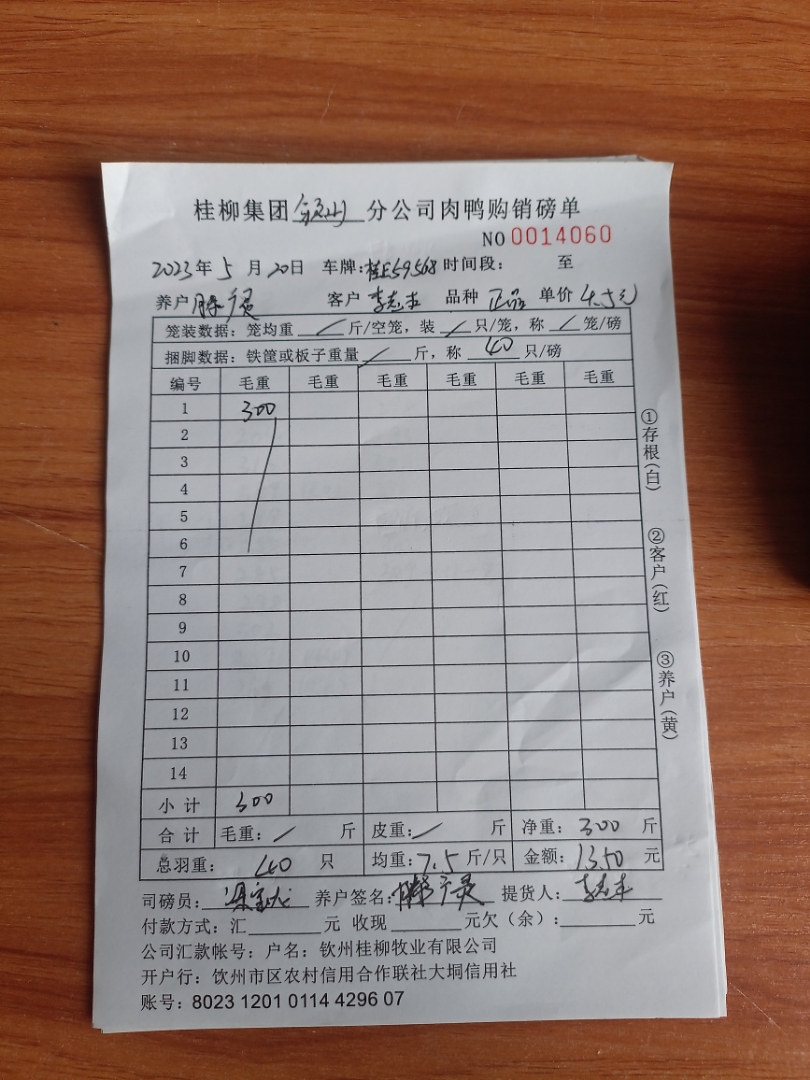 桂柳集团 分公司肉鸭购销磅单
NO 0014060
2023年5月20日 车牌:桂E59568 时间段: 至
养户 客户 李志丰 品种 正品 单价 4.5元
笼装数据: 笼均重 / 斤/空笼, 装 / 只/笼, 称 / 笼/磅
捆脚数据: 铁筐或板子重量 / 斤, 称 40 只/磅
编号 毛重 毛重 毛重 毛重 毛重 毛重
1 300
2
3
4
5
6
7
8
9
10
11
12
13
14
小计 300
合计 毛重: / 斤 皮重: / 斤 净重: 300 斤
总羽重: 40 只 均重: 7.5 斤/只 金额: 1350 元
司磅员: 养户签名: 提货人: 李志丰
付款方式: 汇 元 收现 元欠(余): 元
公司汇款帐号: 户名: 钦州桂柳牧业有限公司
开户行: 钦州市区农村信用合作联社大垌信用社
账号: 8023 1201 0114 4296 07
①存根(白)
②客户(红)
③养户(黄)